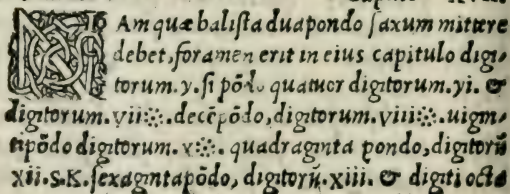 NAm quæ balista duapondo saxum mittere
debet, foramen erit in eius capitulo digi-
torum.y.si põdo quatuor digitorum.yi. &
digitorum.vii⁘.decẽpõdo, digitorum.viii⁘.uigin-
tipõdo digitorum.x⁘. quadraginta pondo, digitorũ
xii.s.K.sexagintapõdo, digitorũ.xiii. & digiti octa